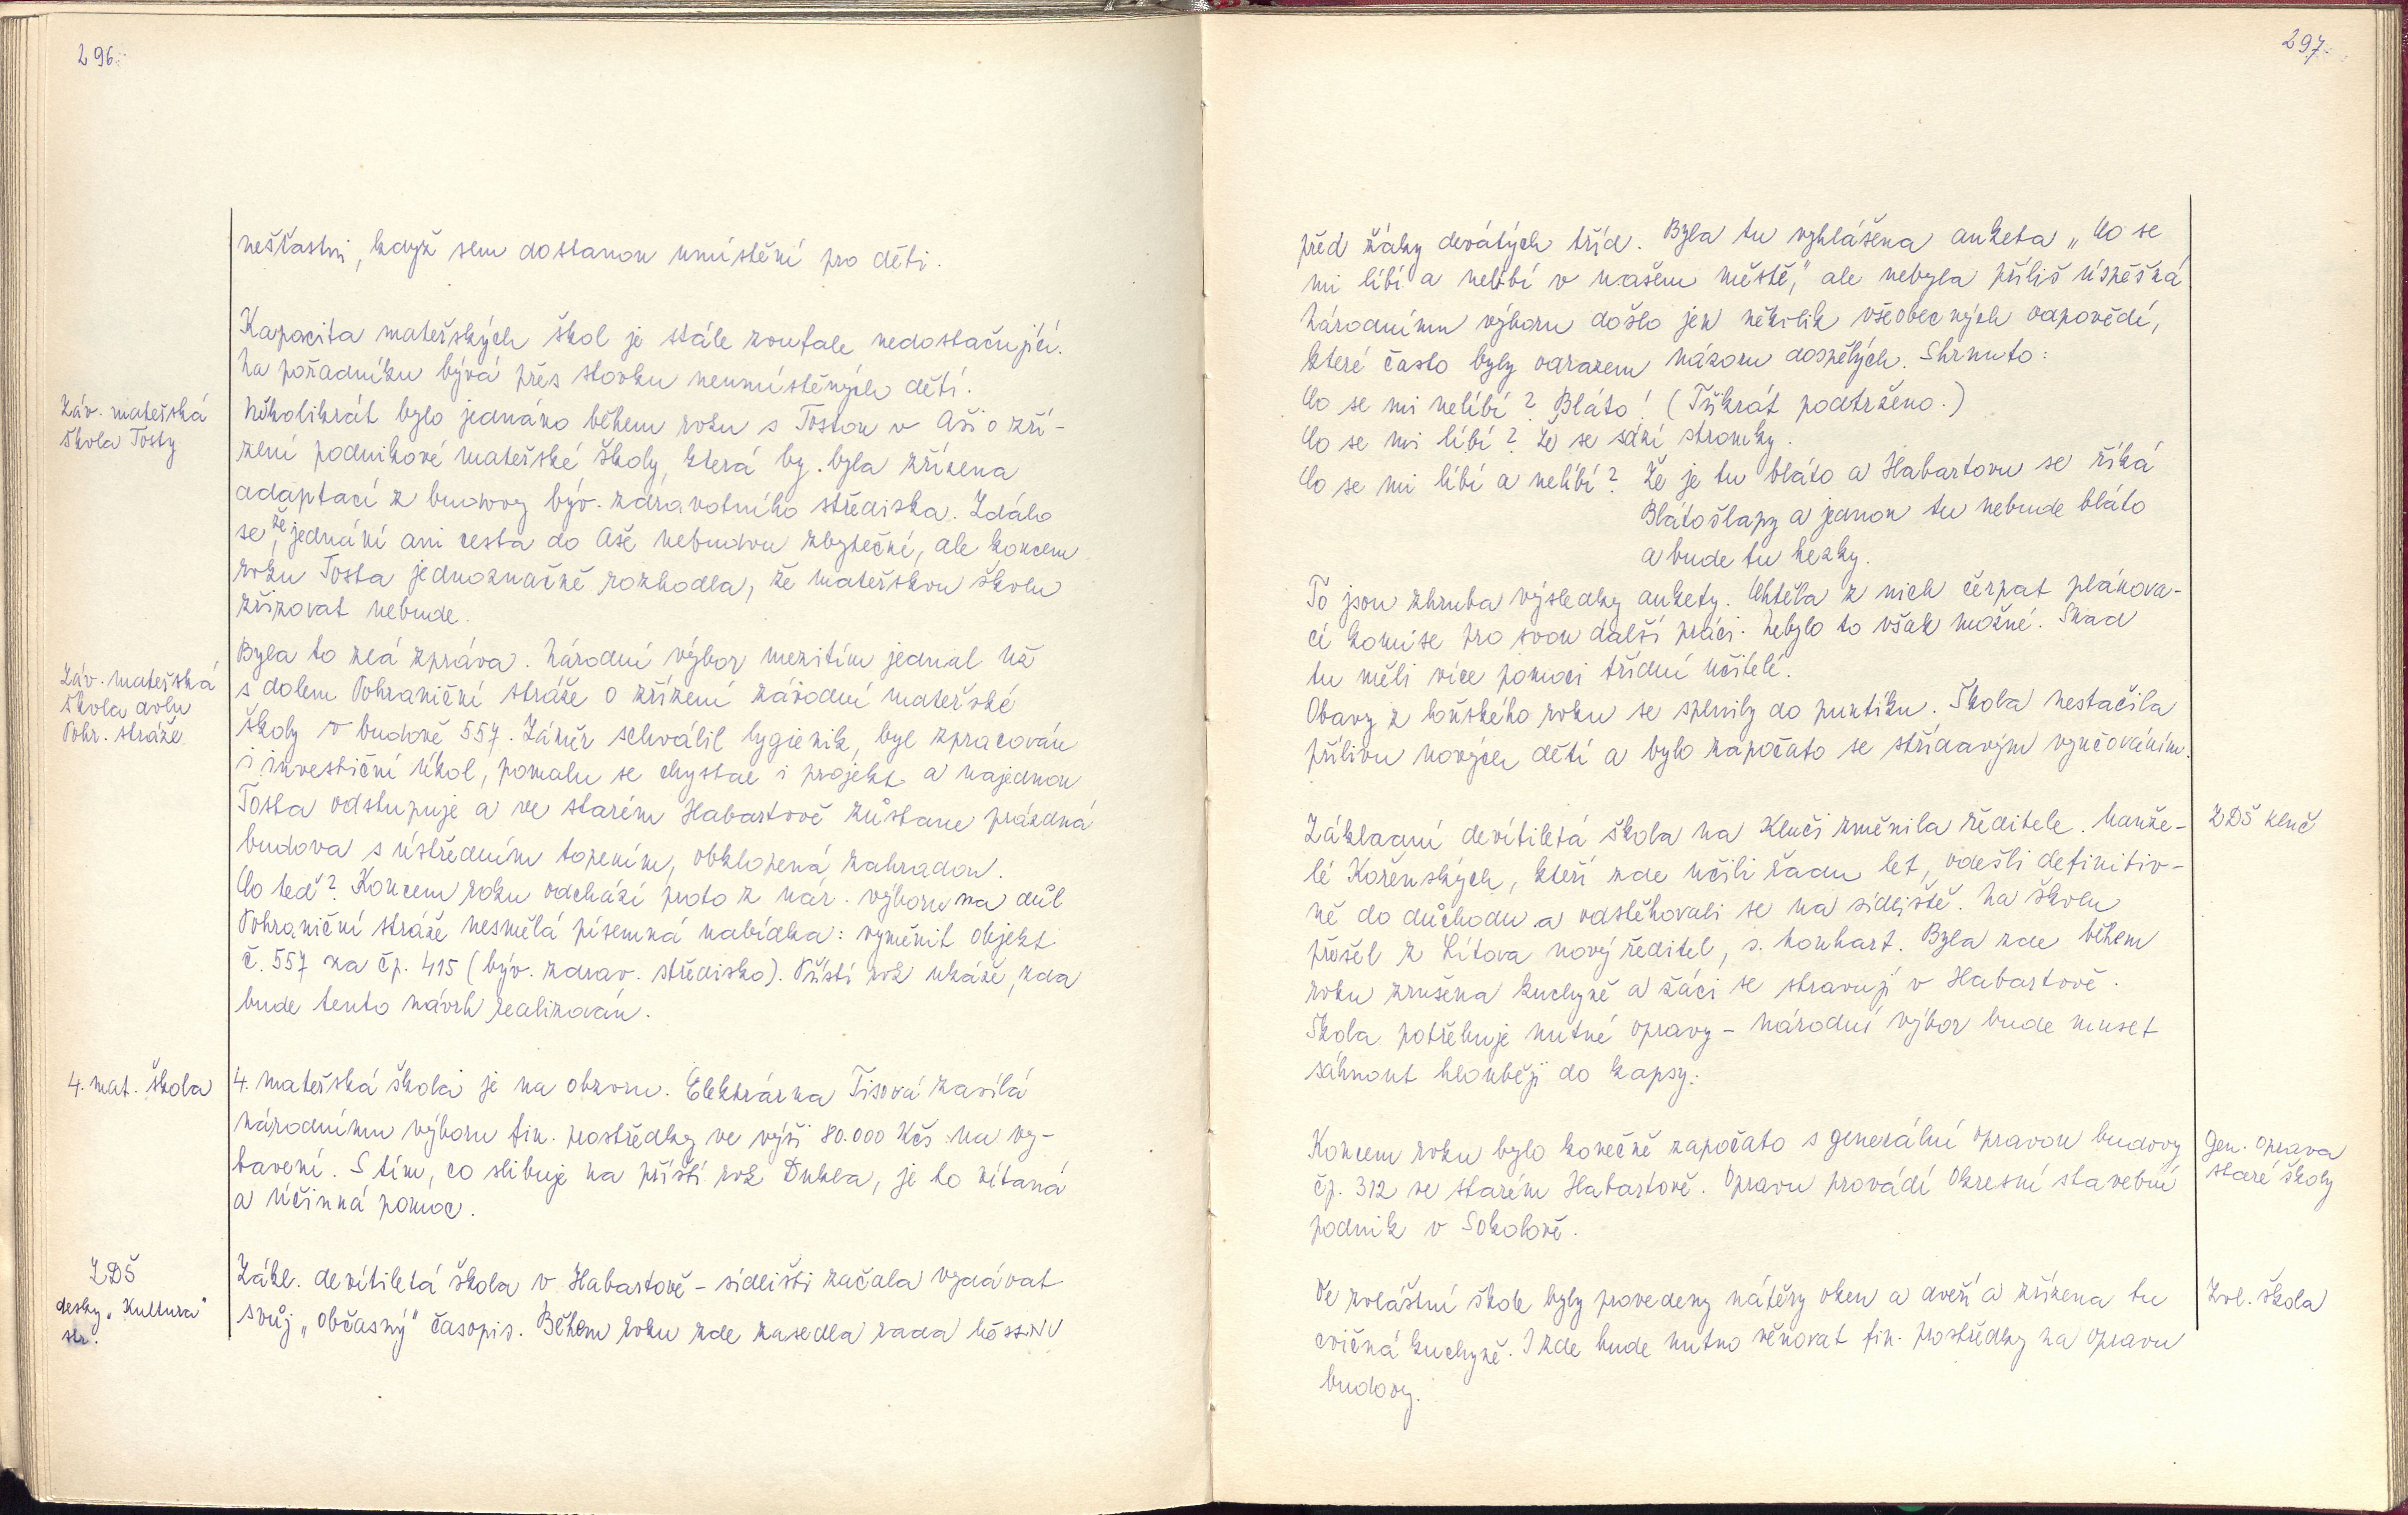 296.
nešťastni, když sem dostanou umístění pro děti.
Kapacita mateřských škol je stále zoufale nedostačující.
Na pořadníku bývá přes stovku neumístěných dětí.
Záv. mateřská
škola Tosty
Několikrát bylo jednáno během roku s Tostou v Aši o zří-
zení podnikové mateřské školy, která by byla zřízena
adaptací z budovy býv. zdravotního střediska. Zdálo
se, že jednání ani cesta do Aše nebudou zbytečné, ale koncem
roku Tosta jednoznačně rozhodla, že mateřskou školu
zřizovat nebude.
Záv. mateřská
škola dolu
Pohr. stráže
Byla to zlá zpráva. Národní výbor mezitím jednal už
s dolem Pohraniční stráže o zřízení závodní mateřské
školy v budově 557. Záměr schválil hygienik, byl zpracován
i investiční úkol, pomalu se chystal i projekt a najednou
Tosta odstupuje a ve starém Habartově zůstane prázdná
budova s ústředním topením, obklopená zahradou.
Co teď? Koncem roku odchází proto z nár. výboru na důl
Pohraniční stráže nesmělá písemná nabídka: vyměnit objekt
č. 557 za čp. 415 (býv. zdrav. středisko). Příští rok ukáže, zda
bude tento návrh realizován.
4. mat. škola
4. mateřská škola je na obzoru. Elektrárna Tisová zasílá
národnímu výboru fin. prostředky ve výši 80.000 Kčs na vy-
bavení. S tím, co slibuje na příští rok Dukla, je to vítaná
a účinná pomoc.
ZDŠ
desky "Kultura"
str.
Zákl. devítiletá škola v Habartově - sídlišti začala vydávat
svůj "občasný" časopis. Během roku zde zasedla rada MěstNV
297.
před žáky devátých tříd. Byla tu vyhlášena anketa „Co se
mi líbí a nelíbí v našem městě," ale nebyla příliš úspěšná
Národnímu výboru došlo jen několik všeobecných odpovědí,
které často byly odrazem názoru dospělých. Shrnuto:
Co se mi nelíbí? Bláto! (Třikrát podtrženo.)
Co se mi líbí? Že se sází stromky.
Co se mi líbí a nelíbí? Že je tu bláto a Habartovu se říká
Blátošlapy a jednou tu nebude bláto
a bude tu hezky.
To jsou zhruba výsledky ankety. Chtěla z nich čerpat plánova-
cí komise pro svou další práci. Nebylo to však možné. Snad
tu měli více pomoci třídní učitelé.
Obavy z loňského roku se splnily do puntíku. Škola nestačila
přílivu nových dětí a bylo započato se střídavým vyučováním.
ZDŠ Kluč
Základní devítiletá škola na Kluči změnila ředitele. Manže-
lé Kořenských, kteří zde učili řadu let, odešli definitiv-
ně do důchodu a odstěhovali se na sídliště. Na školu
přešel z Lítova nový ředitel, s. Monhart. Byla zde během
roku zrušena kuchyně a žáci se stravují v Habartově.
Škola potřebuje nutné opravy - národní výbor bude muset
sáhnout hlouběji do kapsy.
Gen. oprava
staré školy
Koncem roku bylo konečně započato s generální opravou budovy
čp. 312 ve starém Habartově. Opravu provádí Okresní stavební
podnik v Sokolově.
Zvl. škola
Ve zvláštní škole byly provedeny nátěry oken a dveří a zřízena tu
cvičná kuchyně. I zde bude nutno věnovat fin. prostředky na opravu
budovy.